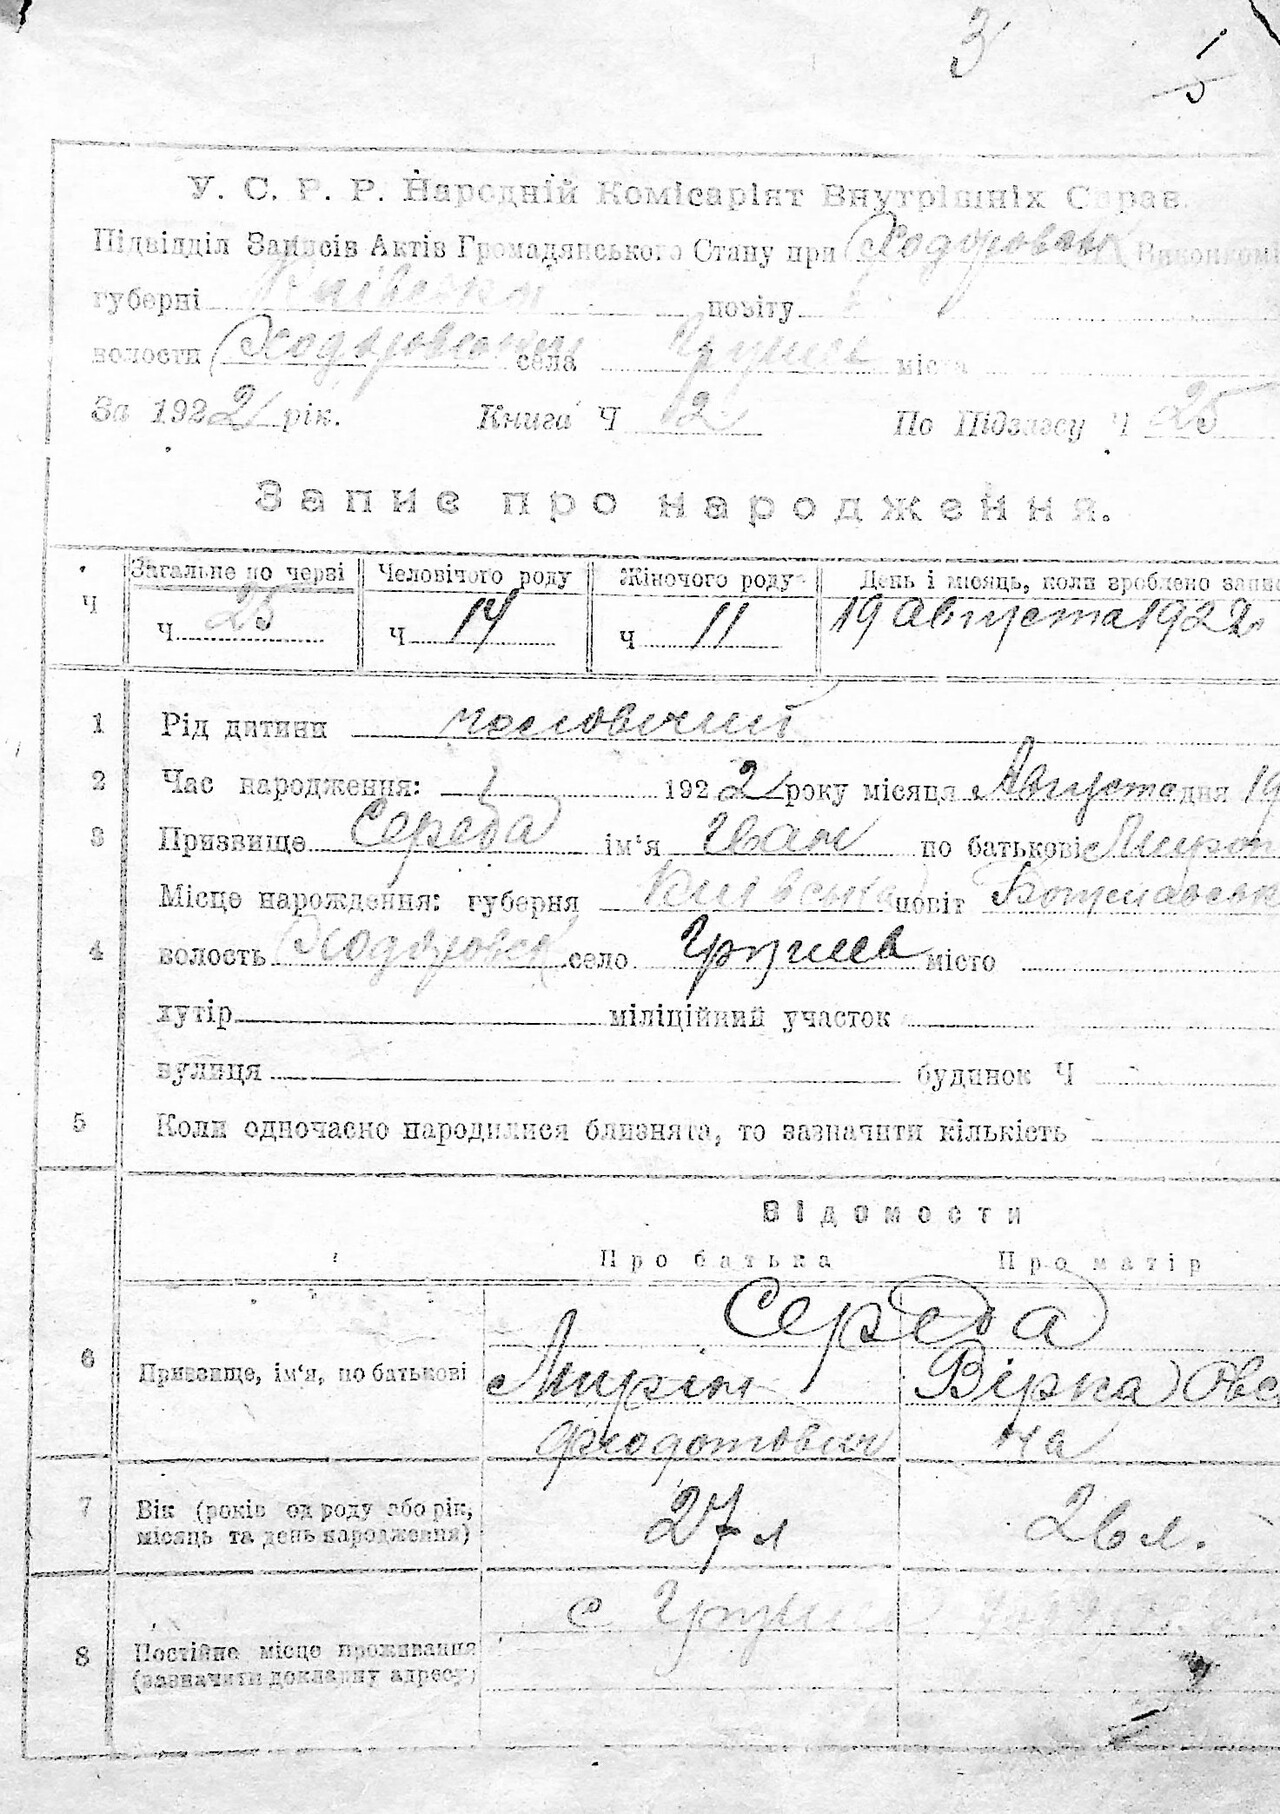 3
1
5
У. С. Р. Р. Народній Комісаріят Внутрішніх Справ.
Підвідділ Записів Актів Громадянського Стану при Ходоровськ Виконкомі
губерні Київськи повіту
волости Ходоровськи села Грушев міста
За 1922 рік. Книга Ч 2 По Підзапсу Ч 25
Запис про народження.
Загальне по черзі Человічого роду Жіночого роду День і місяць, коли зроблено запис
Ч Ч 25 Ч 14 Ч 11 19 Августа 1922
1 Рід дитини чоловічий
2 Час народження: 1922 року місяця Августа дня 19
3 Призвище Середа ім'я Іван по батькові Мирон
Місце нарождення: губерня Київська повіт
4 волость Ходоровск село Грушев місто
хутір міліційний участок
вулиця будинок Ч
5 Коли одночасно народилися близнята, то зазначити кількість
Відомости
Про батька Про матір
Середа
6 Призвище, ім'я, по батькові Мирін Вірка Овс
Феодотович на
7 Вік (років од роду або рік, місяць та день народження) 27 л 26 л.
с Грушев
8 Постійне місце проживання
(зазначити докладну адресу)